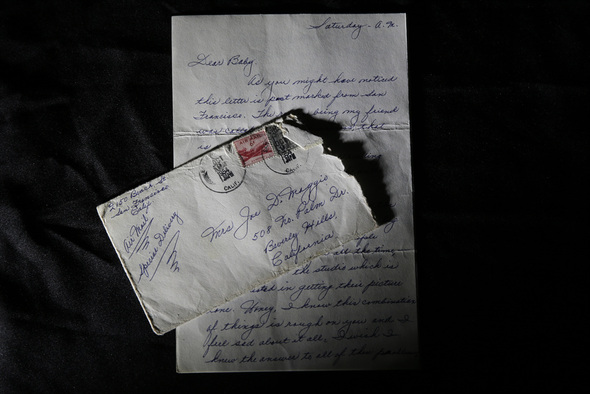 Saturday - A.M.
Dear Baby,
As you might have noticed
this letter is post marked from San
Francisco. The being my friend
was
is
2150 Beach St.
San Francisco
Calif.
Air Mail
Special Delivery
CALIF.
CALIF.
Mrs Joe D. Maggio
508 No. Palm Dr.
Beverly Hills
California
all the time,
the studio which is
in getting their picture
one. Honey, I know this combination
of things is rough on you and I
feel sad about it all, I wish I
knew the answer to all of the